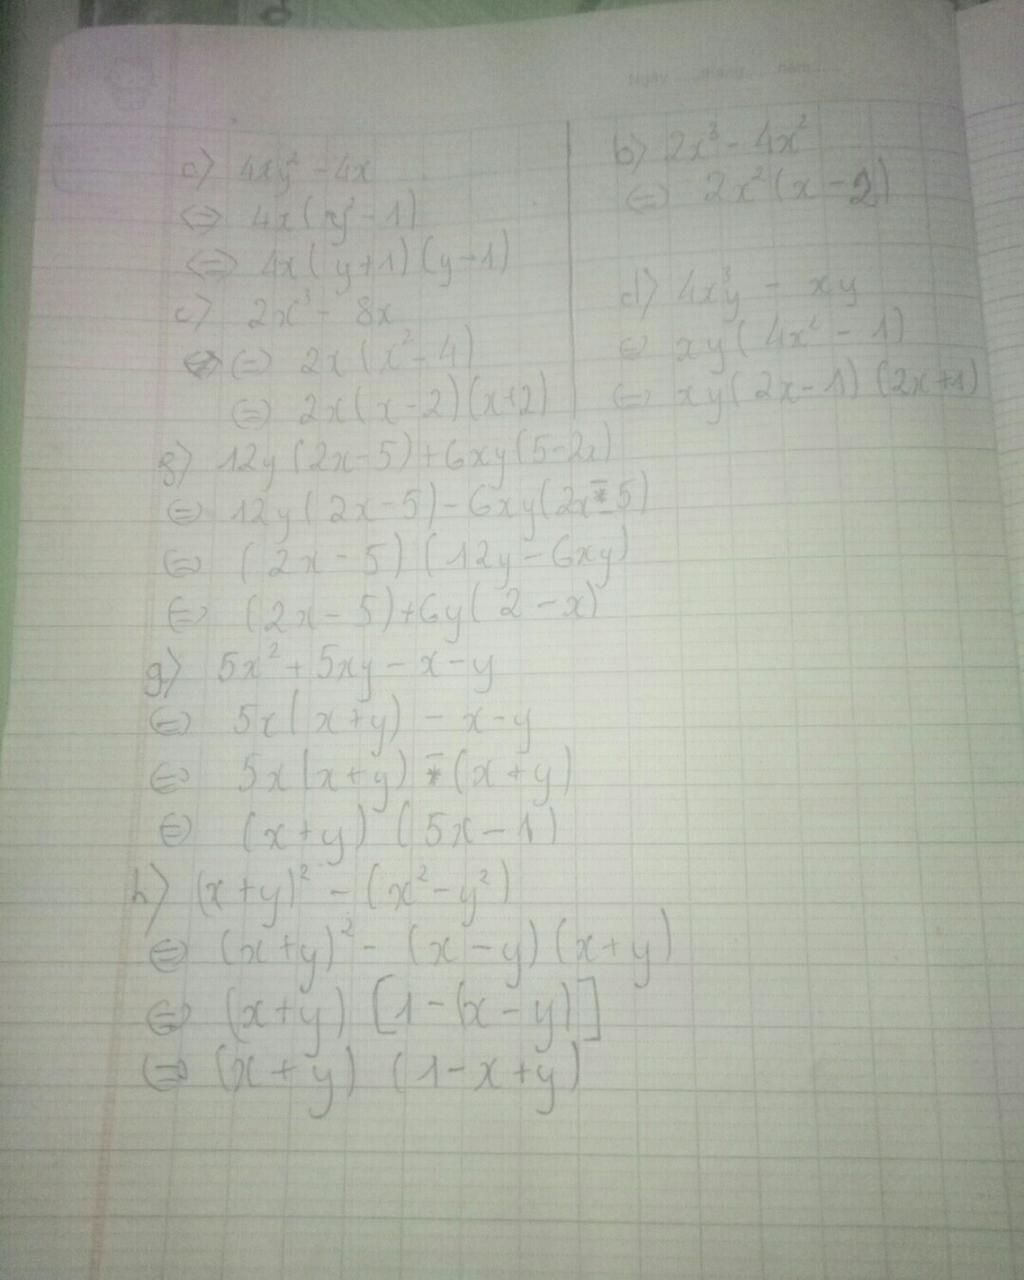 Ngày ..... tháng ..... năm .....
a) 4xy² - 4x
⇔ 4x(y² - 1)
⇔ 4x(y+1)(y-1)
b) 2x³ - 4x²
⇔ 2x²(x - 2)
c) 2x³ - 8x
⇔ 2x(x² - 4)
⇔ 2x(x-2)(x+2)
d) 4x³y - xy
⇔ xy(4x² - 1)
⇔ xy(2x-1)(2x+1)
12y(2x-5)+6xy(5-2x)
⇔ 12y(2x-5)-6xy(2x-5)
⇔ (2x-5)(12y-6xy)
⇔ (2x-5)+6y(2-x)
g) 5x² + 5xy - x - y
⇔ 5x(x+y) - x-y
⇔ 5x(x+y) - (x+y)
⇔ (x+y) (5x-1)
h) (x+y)² - (x²-y²)
⇔ (x+y)² - (x-y)(x+y)
⇔ (x+y) [1-(x-y)]
⇔ (x+y) (1-x+y)